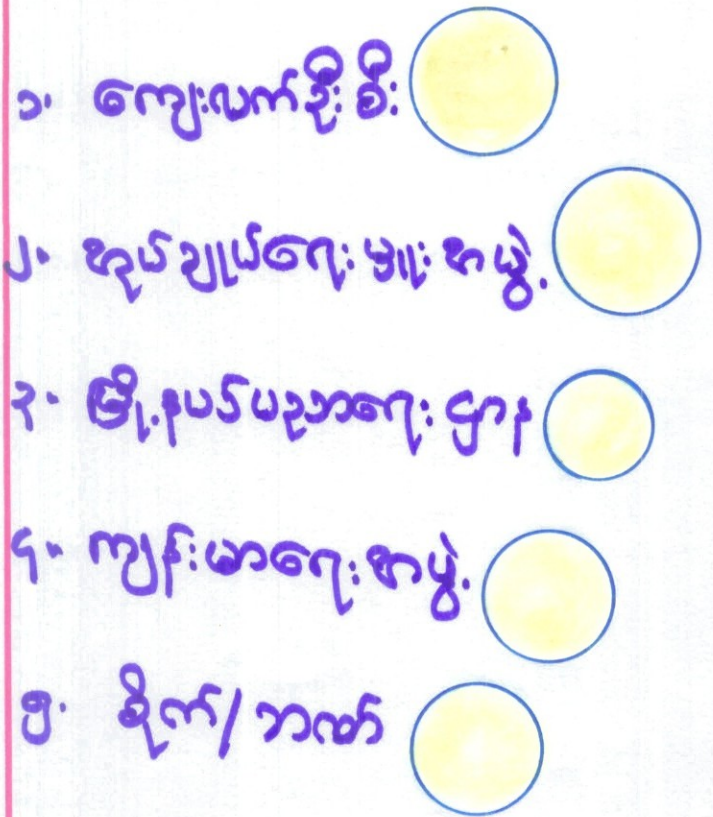 ၁။ ကျေးလက်ဦးစီး
၂။ အုပ်ချုပ်ရေးမှူးအဖွဲ့
၃။ မြို့နယ်ပညာရေးဌာန
၄။ ကျန်းမာရေးအဖွဲ့
၅။ စိုက်/ဘဏ်